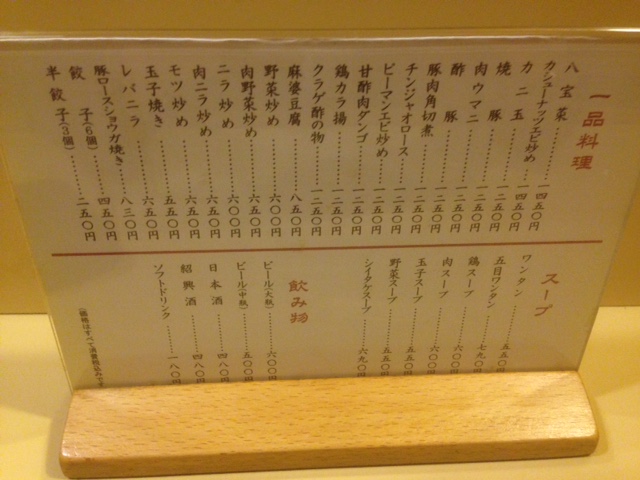 一品料理
八宝菜
カシューナッツエビ炒め……一四五〇円
カニ玉……一四五〇円
焼豚……一二五〇円
肉ウマニ……一二五〇円
酢豚……一二五〇円
豚肉角切煮……一二五〇円
チンジャオロース……一二五〇円
ピーマンエビ炒め……一二五〇円
甘酢肉ダンゴ……一二五〇円
鶏カラ揚……一二五〇円
クラゲ酢の物……一二五〇円
麻婆豆腐……八五〇円
野菜炒め……六〇〇円
肉野菜炒め……六五〇円
ニラ炒め……六〇〇円
肉ニラ炒め……六五〇円
モツ炒め……五五〇円
玉子焼き……六五〇円
レバニラ……八三〇円
豚ロースショウガ焼き……四五〇円
餃子(6個)
半餃子(3個)……二五〇円
スープ
ワンタン……五五〇円
五目ワンタン……七九〇円
鶏スープ……六〇〇円
肉スープ……六〇〇円
玉子スープ……五五〇円
野菜スープ……五五〇円
シイタケスープ……六九〇円
飲み物
ビール(大瓶)……六〇〇円
ビール(中瓶)……五〇〇円
日本酒……四八〇円
紹興酒……四八〇円
ソフトドリンク……一八〇円
(価格はすべて消費税込みです